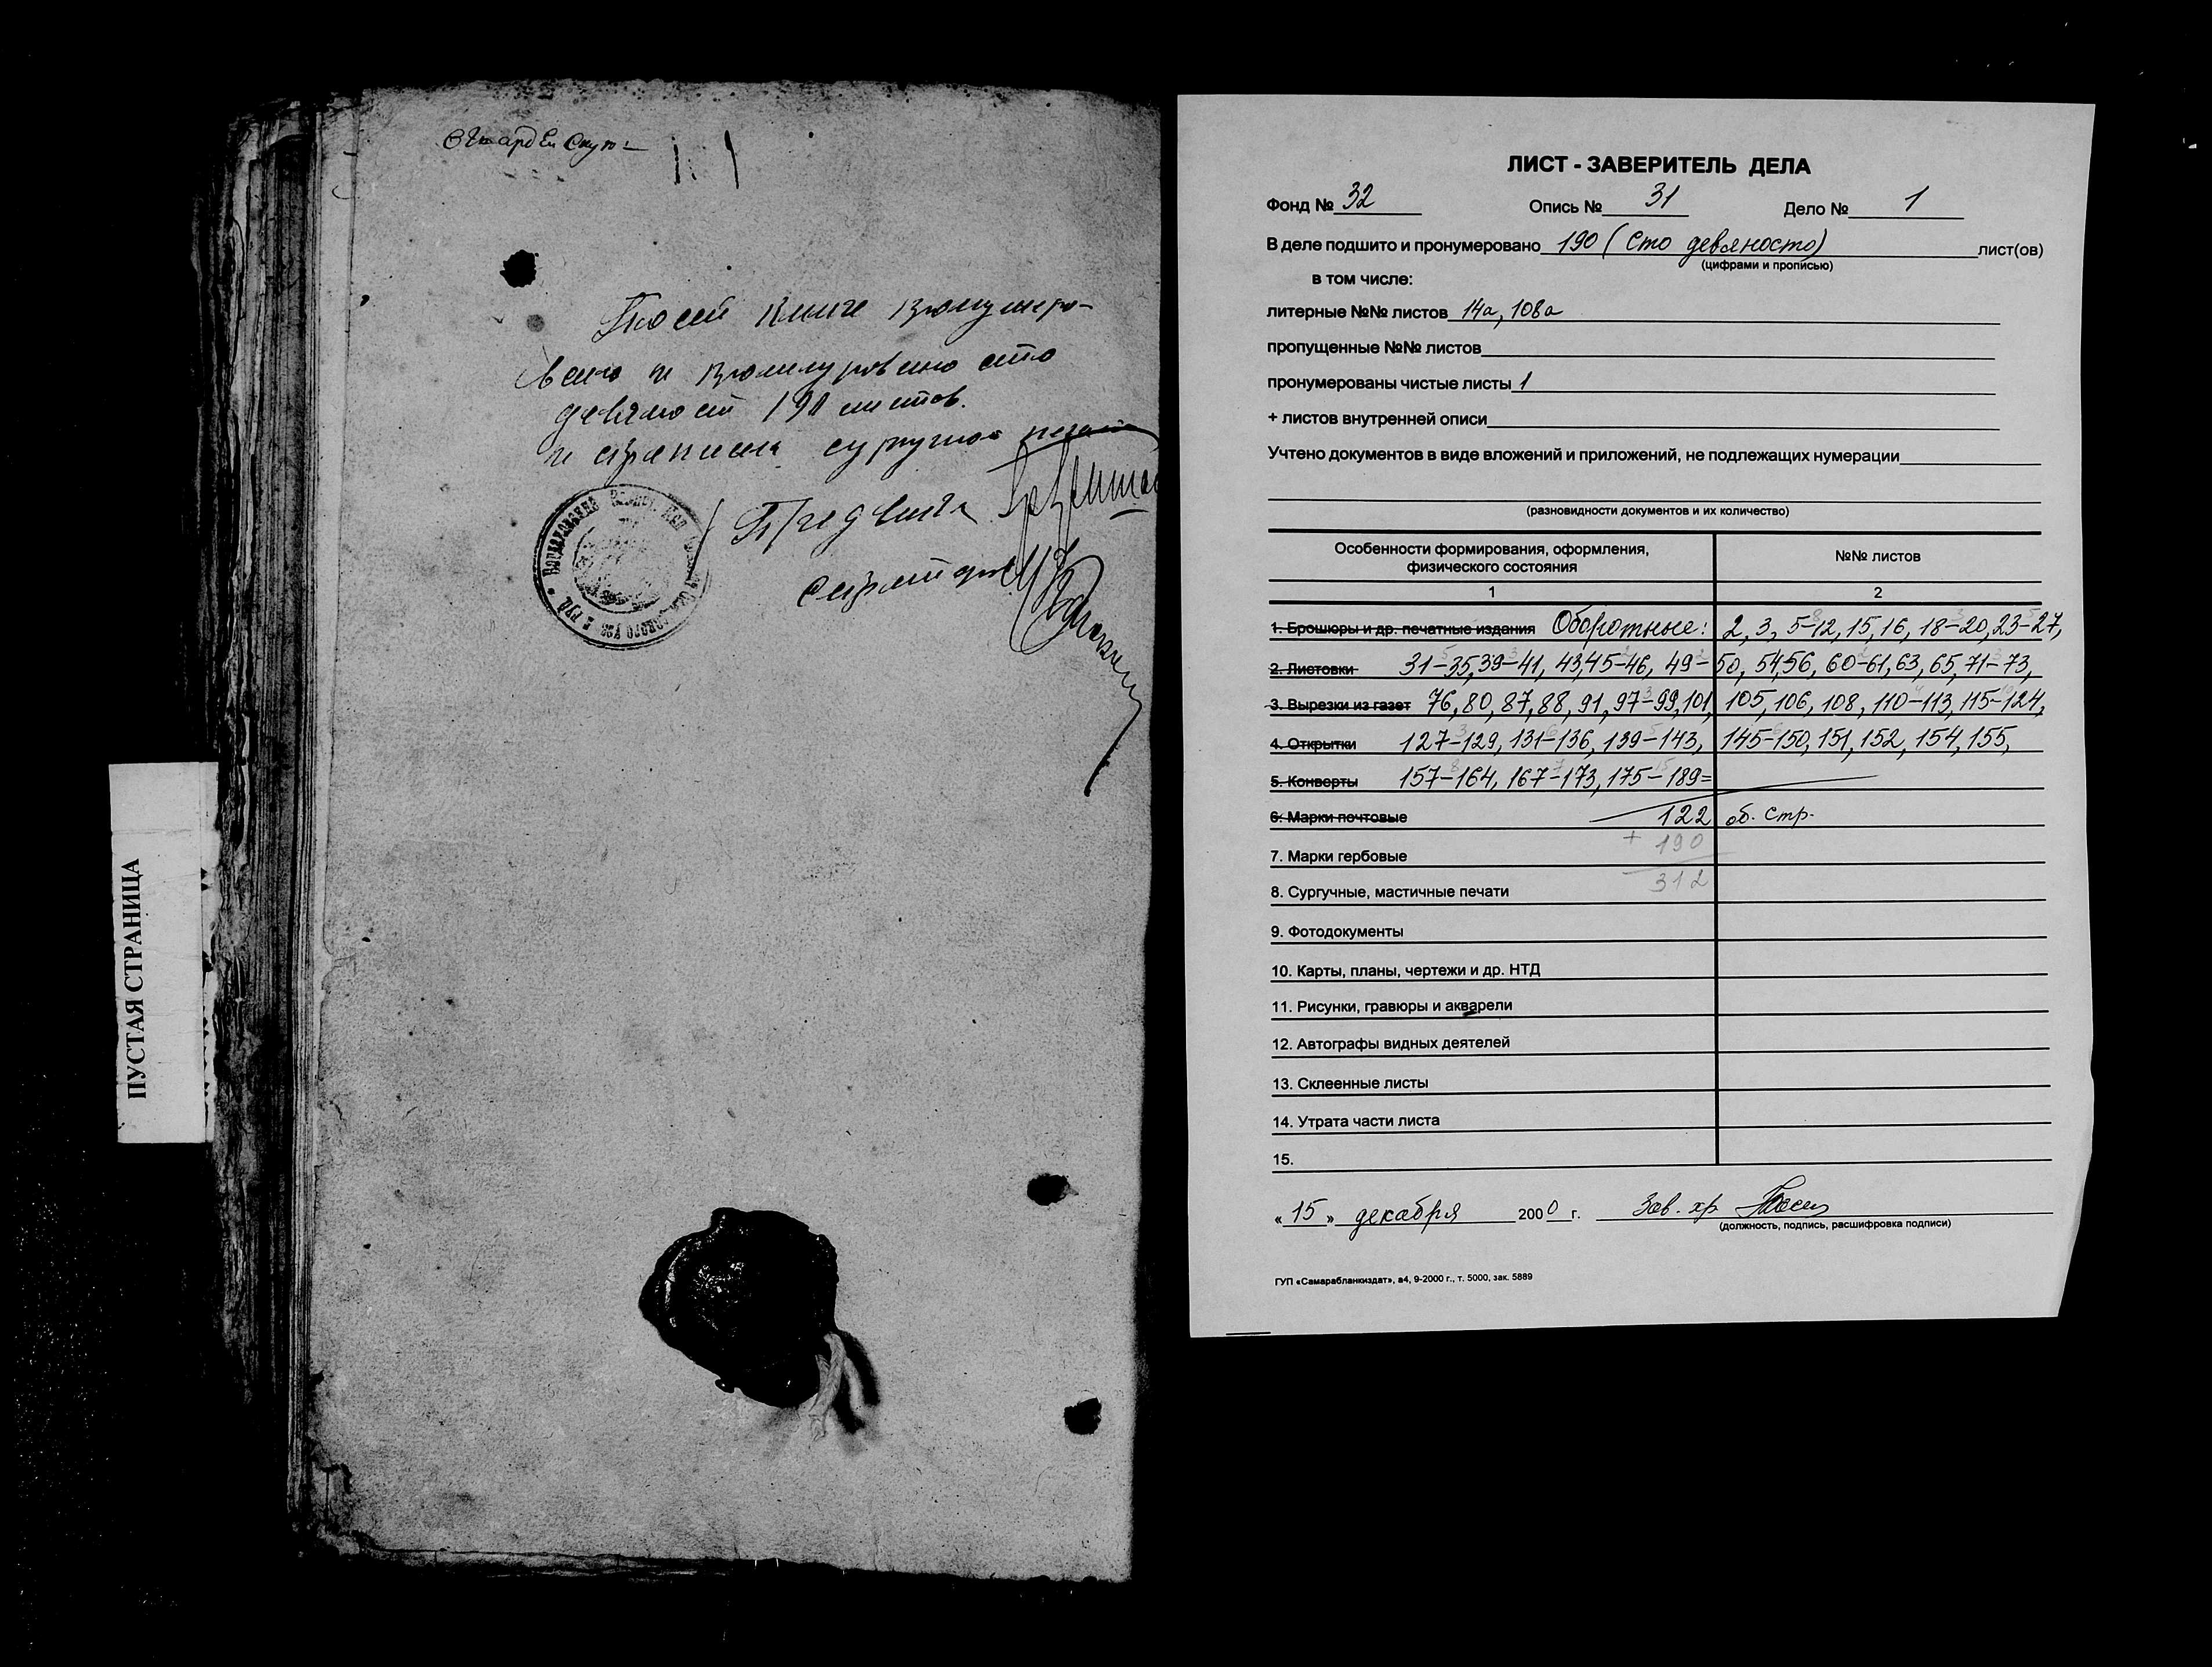 ПУСТАЯ СТРАНИЦА
По сей книге пронумеро-
вано и прошнуровано сто
девяност 190 листов.
и скреплена сургучной
Председ
секретарь
ЛИСТ - ЗАВЕРИТЕЛЬ ДЕЛА
Фонд № 32 Опись № 31 Дело № 1
В деле подшито и пронумеровано 190 (сто девяносто) лист(ов)
(цифрами и прописью)
в том числе:
литерные №№ листов 14а, 108а
пропущенные №№ листов
пронумерованы чистые листы 1
+ листов внутренней описи
Учтено документов в виде вложений и приложений, не подлежащих нумерации
(разновидности документов и их количество)
Особенности формирования, оформления, №№ листов
физического состояния
1 2
1. Брошюры и др. печатные издания Оборотные: 2, 3, 5-12, 15, 16, 18-20, 23-27,
2. Листовки 31-35, 39-41, 43, 45-46, 49-50, 54, 56, 60-61, 63, 65, 71-73,
3. Вырезки из газет 76, 80, 87, 88, 91, 97-99, 101, 105, 106, 108, 110-113, 115-124,
4. Открытки 127-129, 131-136, 139-143, 145-150, 151, 152, 154, 155,
5. Конверты 157-164, 167-173, 175-189=
6. Марки почтовые 122 об. стр.
+ 190
7. Марки гербовые
312
8. Сургучные, мастичные печати
9. Фотодокументы
10. Карты, планы, чертежи и др. НТД
11. Рисунки, гравюры и акварели
12. Автографы видных деятелей
13. Склеенные листы
14. Утрата части листа
15.
« 15 » декабря 2000 г. Зав. хр.
(должность, подпись, расшифровка подписи)
ГУП «Самарабланкиздат», а4, 9-2000 г., т. 5000, зак. 5889